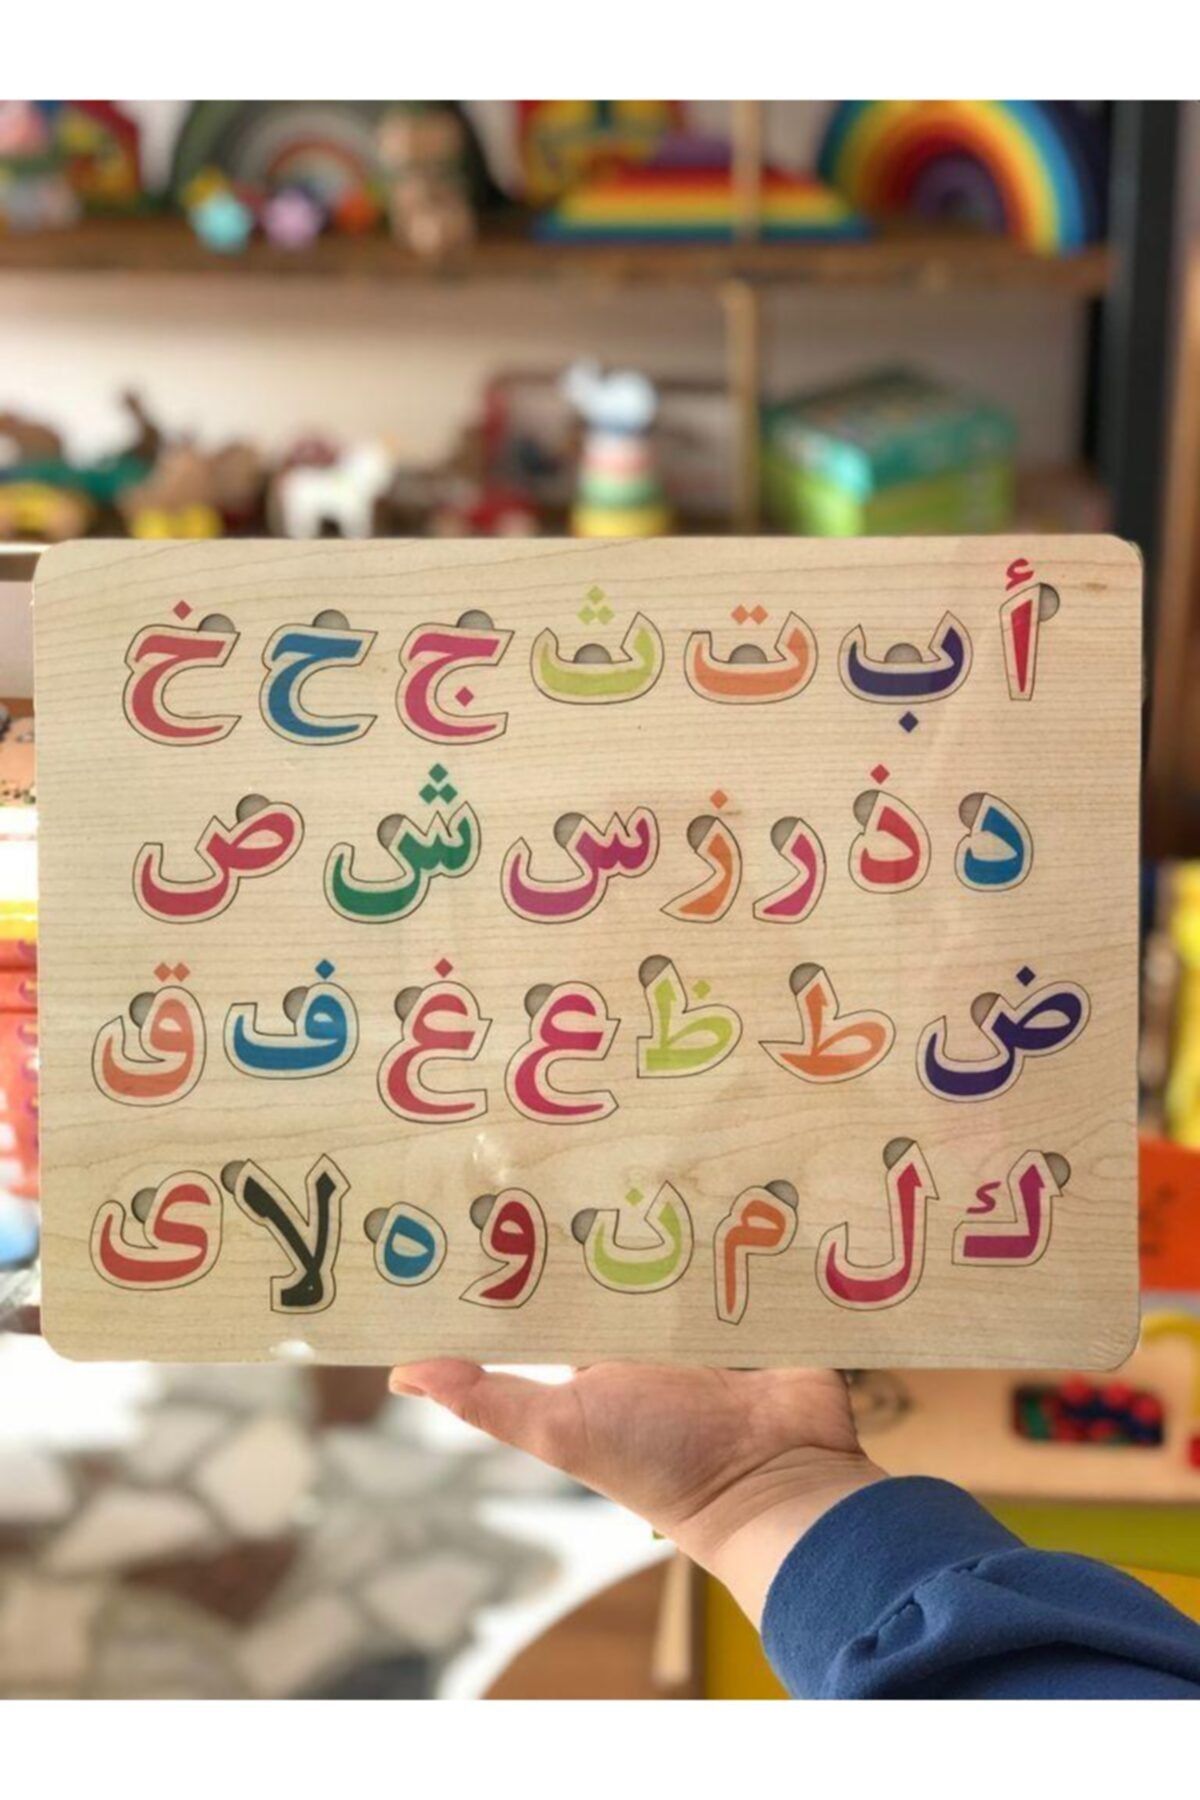 أ ب ت ث ج ح خ
د ذ ر ز س ش ص
ض ط ظ ع غ ف ق
ك ل م ن و ه لا ى